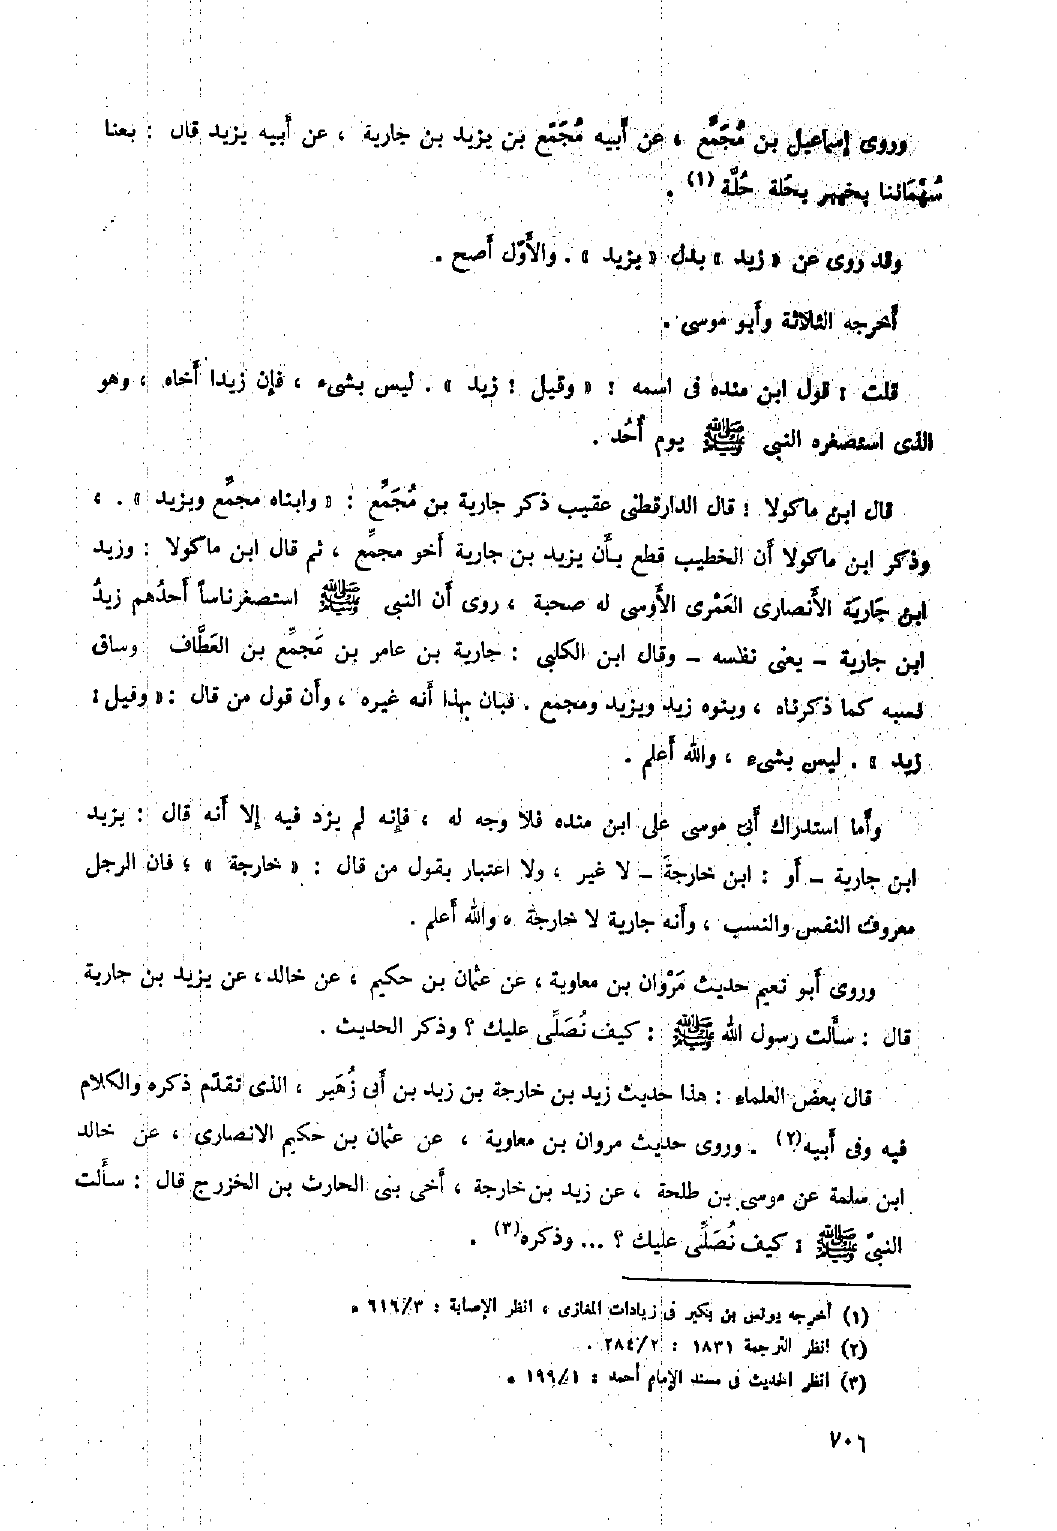 وروى إسماعيل بن مُجَمِّع ، عن أَبيه مُجَمِّع بن يزيد بن جارية ، عن أَبيه يزيد قال : بعنا
سُهْمَاننا بخيبر بحُلة حُلَّة (١) .
وقد روى عن « زيد » بدل « يزيد » . والأَوّل أَصح .
أَخرجه الثلاثة وأَبو موسى .
قلت : قول ابن منده فى اسمه : « وقيل : زيد » . ليس بشىء ، فإن زيدا أَخاه ، وهو
الذى استصغره النبى ﷺ يوم أُحُد .
قال ابن ماكولا : قال الدارقطنى عقيب ذكر جارية بن مُجَمِّع : « وابناه مجمِّع ويزيد » . ،
وذكر ابن ماكولا أَن الخطيب قطع بأَن يزيد بن جارية أَخو مجمِّع ، ثم قال ابن ماكولا : وزيد
ابن جَارِيَة الأَنصارى العَمْرى الأَوسى له صحبة ، روى أَن النبى ﷺ استصغر ناساً أَحدُهم زيدُ
ابن جارية – يعنى نفسه – وقال ابن الكلبى : جارية بن عامر بن مُجَمِّع بن العَطَّاف وساق
نسبه كما ذكرناه ، وبنوه زيد ويزيد ومجمع . فبان بهذا أَنه غيره ، وأَن قول من قال : « وقيل :
زيد » . ليس بشىء ، والله أَعلم .
وأَما استدراك أَبى موسى على ابن منده فلا وجه له ، فإنه لم يزد فيه إلا أَنه قال : يزيد
ابن جارية – أَو : ابن خارجةَ – لا غير ، ولا اعتبار بقول من قال : « خارجة » ؛ فان الرجل
معروف النفس والنسب ، وأَنه جارية لا خارجة ، والله أَعلم .
وروى أَبو نعيم حديث مَرْوان بن معاوية ، عن عثمان بن حكيم ، عن خالد ، عن يزيد بن جارية
قال : سأَلت رسول الله ﷺ : كيف نُصَلِّى عليك ؟ وذكر الحديث .
قال بعض العلماء : هذا حديث زيد بن خارجة بن زيد بن أَبى زُهَير ، الذى تقدّم ذكره والكلام
فيه وفى أَبيه(٢) . وروى حديث مروان بن معاوية ، عن عثمان بن حكيم الانصارى ، عن خالد
ابن سلمة عن موسى بن طلحة ، عن زيد بن خارجة ، أَخى بنى الحارث بن الخزرج قال : سأَلت
النبىّ ﷺ : كيف نُصَلِّى عليك ؟ ... وذكره(٣) .
(١) أخرجه يونس بن بكير فى زيادات المغازى ، انظر الإصابة : ٦١٦/٣ .
(٢) انظر الترجمة ١٨٣١ : ٢٨٤/٢ .
(٣) انظر الحديث فى مسند الإمام أحمد : ١٩٩/١ .
٧٠٦